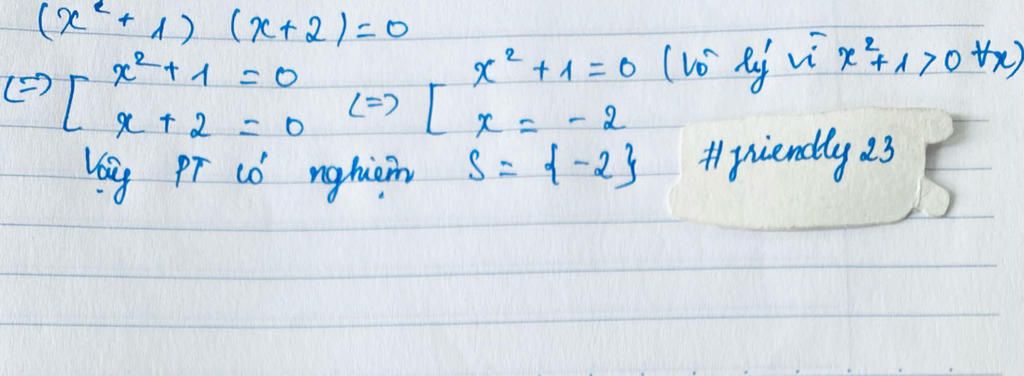 (x² + 1) (x+2) = 0
(=) [ x² + 1 = 0 (=) [ x² + 1 = 0 (vô lý vì x² + 1 > 0 ∀x)
x + 2 = 0 x = - 2
Vậy PT có nghiệm S = { -2 }
# friendly 23